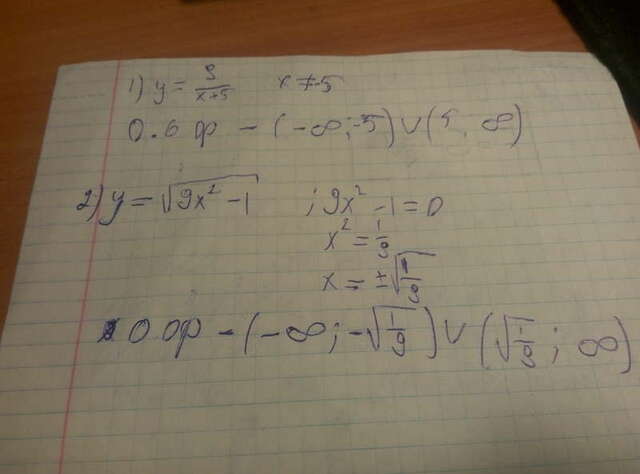 1) y = 9/(x+5) x ≠ -5
О.о ф - (-∞; -5) ∪ (5, ∞)
2) y = √(9x² - 1) ; 9x² - 1 = 0
x² = 1/9
x = ±√(1/9)
О.оф - (-∞; -√(1/9)) ∪ (√(1/9); ∞)